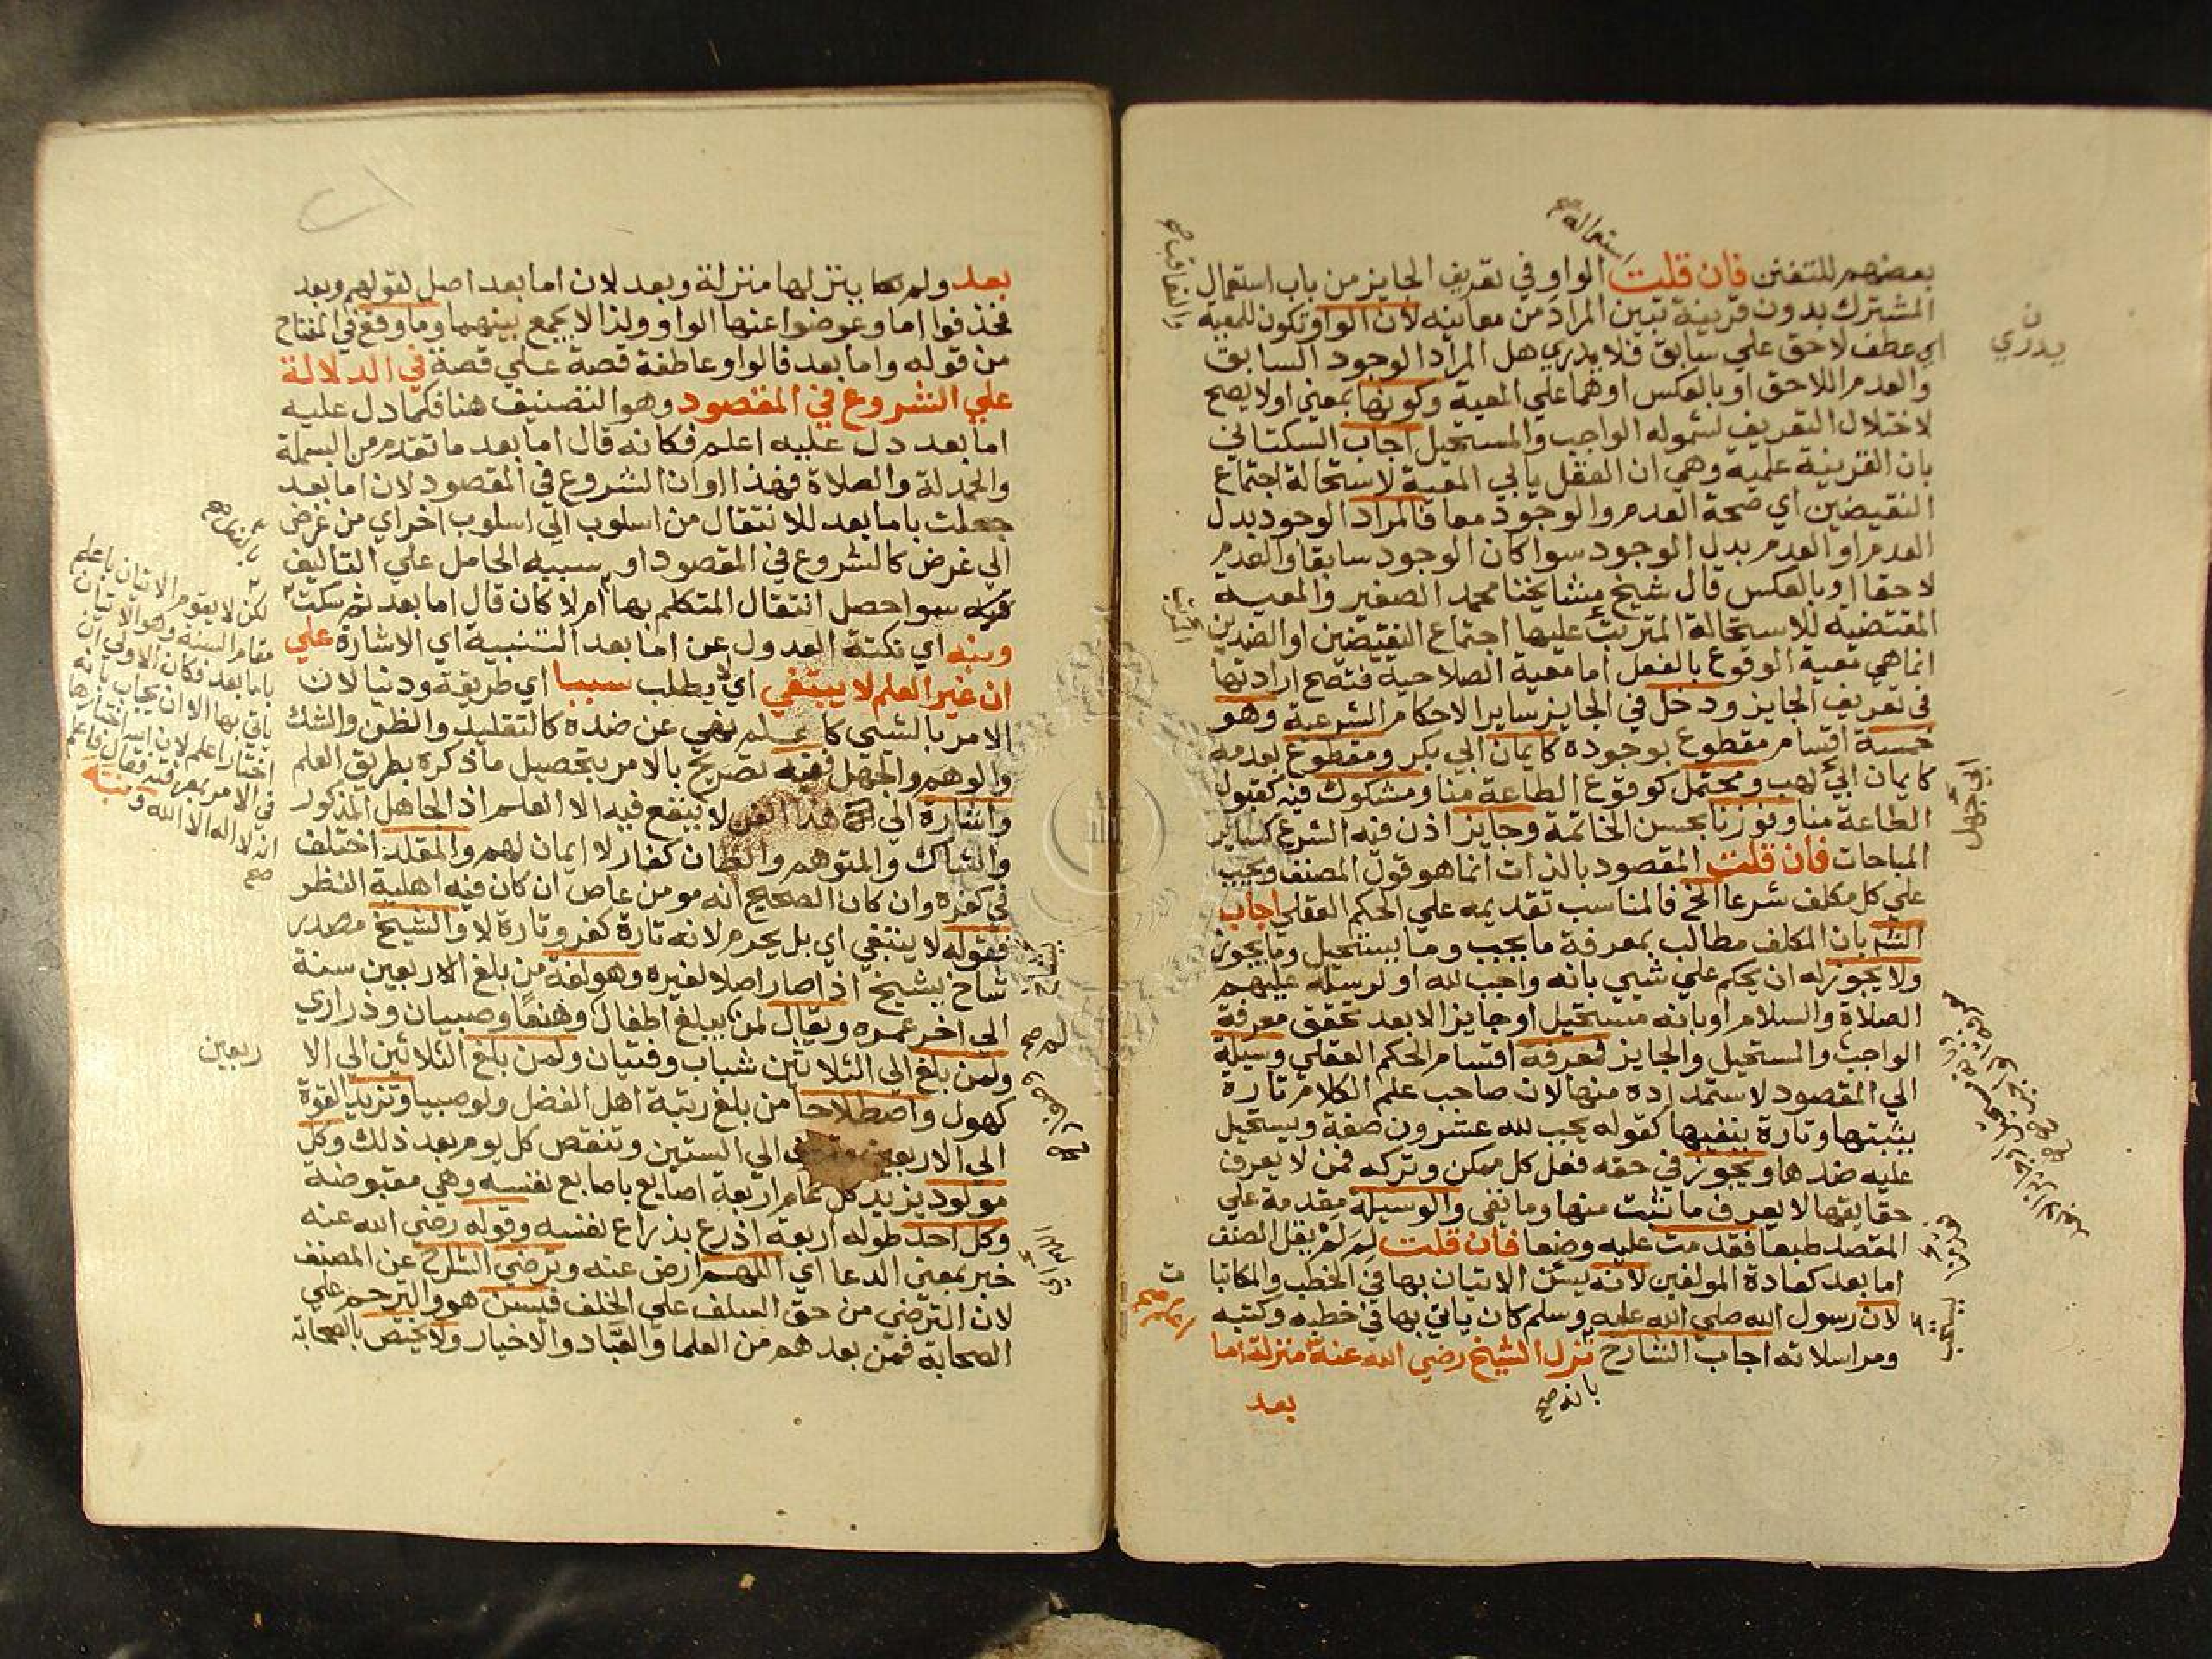 بعضهم للتفنن فان قلت الواو في تعريف الجايز من باب استعمال
المشترك بدون قرينة تبين المراد من معانيه لان الواو تكون للمعية
اي عطف لاحق علي سابق فلا يدري هل المراد الوجود السابق
والعدم اللاحق او بالعكس او هما علي المعية وكونها بمعني او لا يصح
لاختلال التعريف لشموله الواجب والمستحيل اجاب السكتاني
بان القرينة علمية وهي ان العقل يابي المعية لاستحالة اجتماع
النقيضين اي صحة العدم والوجود معا فالمراد الوجود بدل
العدم او العدم بدل الوجود سوا كان الوجود سابقا والعدم
لاحقا او بالعكس قال شيخ مشايخنا محمد الصغير والمعية
المقتضية للاستحالة المترتب عليها اجتماع النقيضين او الضدين
انما هي معية الوقوع بالفعل اما معية الصلاحية فتصح ارادتها
في تعريف الجايز ودخل في الجايز ساير الاحكام الشرعية وهو
خمسة اقسام مقطوع بوجوده كايمان ابي بكر ومقطوع بعدمه
كايمان ابي لهب ومحتمل كوقوع الطاعة منا ومشكوك فيه كقبول
الطاعة منا وفوزنا بحسن الخاتمة وجايز اذن فيه الشرع كساير
المباحات فان قلت المقصود بالذات انما هو قول المصنف ويجب
علي كل مكلف شرعا الخ فالمناسب تقديمه علي الحكم العقلي اجاب
الش بان المكلف مطالب بمعرفة ما يجب وما يستحيل وما يجوز
ولا يجوز له ان يحكم علي شيي بانه واجب لله او لرسله عليهم
الصلاة والسلام او بانه مستحيل او جايز الا بعد تحقق معرفة
الواجب والمستحيل والجايز فمعرفة اقسام الحكم العقلي وسيلة
الي المقصود لاستمداده منها لان صاحب علم الكلام تارة
يثبتها وتارة ينفيها كقوله يجب لله عشرون صفة ويستحيل
عليه ضدها ويجوز في حقه فعل كل ممكن وتركه فمن لا يعرف
حقايقها لا يعرف ما تثبت منها وما نفي والوسيلة مقدمة علي
المقصد طبعا فقدمت عليه وضعا فان قلت لم لم يقل المصنف
اما بعد كعادة المولفين لانه يسن الاتيان بها في الخطب والمكاتبا
لان رسول الله صلي الله عليه وسلم كان ياتي بها في خطبه وكتبه
ومراسلاته اجاب الشارح نزل الشيخ رضي الله عنه منزلة اما
بعد
بانه صح
يدري
ابي جهل
بعد ولم ينزلها منزلة وبعد لان اما بعد اصل لقولهم وبعد
فحذفوا اما وعوضوا عنها الواو ولذا لا يجمع بينهما وما وقع في المفتاح
من قوله واما بعد فالواو عاطفة قصة علي قصة في الدلالة
علي الشروع في المقصود وهو التصنيف هنا فكما دل عليه
اما بعد دل عليه اعلم فكانه قال اما بعد ما تقدم من البسملة
والحمدلة والصلاة فهذا اوان الشروع في المقصود لان اما بعد
جعلت باما بعد للانتقال من اسلوب الي اسلوب اخر اي من غرض
الي غرض كالشروع في المقصود او سببيه الحامل علي التاليف
فيه سوا حصل انتقال المتكلم بها ام لا كان قال اما بعد ثم سكت
ونبه اي نكتة العدول عن اما بعد التنبيه اي الاشارة علي
ان غير العلم لا يبتغي اي لا يطلب سببا اي طريقة ودنيا لان
الامر بالشيي كاعلم نهي عن ضده كالتقليد والظن والشك
والوهم والجهل ففيه تصريح بالامر بتحصيل ما ذكره بطريق العلم
واشارة الي ان هذا الفن لا ينفع فيه الا العلم اذ الجاهل المذكور
والشاك والمتوهم والظان كفار لا ايمان لهم والمقلد اختلف
في كفره وان كان الصحيح انه مومن عاص ان كان فيه اهلية النظر
فقوله لا يبتغي اي بل يحرم لانه تارة كفر وتارة لا والشيخ مصدر
شاخ يشيخ اذا صار اصلا لغيره وهو لغة من بلغ الاربعين سنة
الي اخر عمره ويقال لمن يبلغ اطفال وصبيان وذراري
ولمن بلغ الي الثلاثين شباب وفتيان ولمن بلغ الثلاثين الي الا
ربعين
كهول واصطلاحا من بلغ رتبة اهل الفضل ولو صبيا وتزيد القوة
الي الاربعين الي الستين وتنقص كل يوم بعد ذلك وكل
مولود يزيد كل عام اربعة اصابع باصابع نفسه وهي مقبوضة
وكل احد طوله اربعة اذرع بذراع نفسه وقوله رضي الله عنه
خبر بمعني الدعا اي اللهم ارض عنه وترضي الشارح عن المصنف
لان الترضي من حق السلف علي الخلف فيسن هو والترحم علي
الصحابة فمن بعدهم من العلما والعباد والاخيار ولا يختص بالصحابة
لكن لا يقوم الاتيان باعلم
مقام السنة وهو الاتيان
باما بعد فكان الاولي ان
ياتي بها الا ان يجاب بانه
اختار اعلم لان
في الامر بمعرفته فقال فاعلم
انه لا اله الا الله ونبه
صح